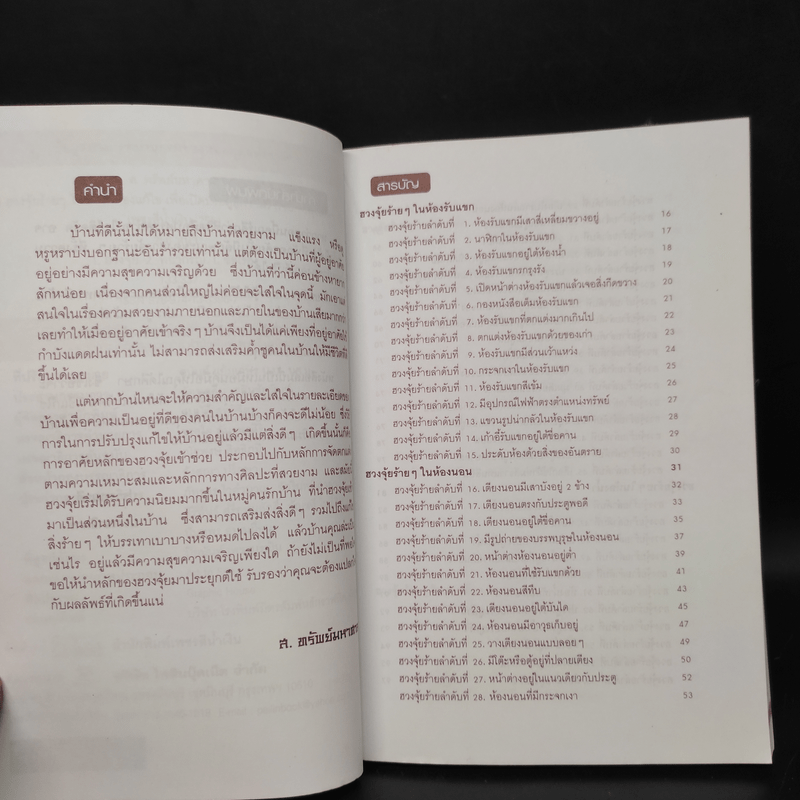 คำนำ
บ้านที่ดีนั้นไม่ได้หมายถึงบ้านที่สวยงาม แข็งแรง หรือดู
หรูหราบ่งบอกฐานะอันร่ำรวยเท่านั้น แต่ต้องเป็นบ้านที่ผู้อยู่อาศัย
อยู่อย่างมีความสุขความเจริญด้วย ซึ่งบ้านที่ว่านี้ค่อนข้างหายาก
สักหน่อย เนื่องจากคนส่วนใหญ่ไม่ค่อยจะใส่ใจในจุดนี้ มักเอาแต่
สนใจในเรื่องความสวยงามภายนอกและภายในของบ้านเสียมากกว่า
เลยทำให้เมื่ออยู่อาศัยเข้าจริงๆ บ้านจึงเป็นได้แค่เพียงที่อยู่อาศัย
กำบังแดดฝนเท่านั้น ไม่สามารถส่งเสริมค้ำชูคนในบ้านให้มีชีวิตที่
ขึ้นได้เลย
แต่หากบ้านไหนจะให้ความสำคัญและใส่ใจในรายละเอียดของ
บ้านเพื่อความเป็นอยู่ที่ดีของคนในบ้านบ้างก็คงจะดีไม่น้อย ซึ่ง
การในการปรับปรุงแก้ไขให้บ้านอยู่แล้วมีแต่สิ่งดีๆ เกิดขึ้นนั้นก็
การอาศัยหลักของฮวงจุ้ยเข้าช่วย ประกอบไปกับหลักการจัดตกแต่ง
ตามความเหมาะสมและหลักการทางศิลปะที่สวยงาม และสมัยนี้
ฮวงจุ้ยเริ่มได้รับความนิยมมากขึ้นในหมู่คนรักบ้าน ที่นำฮวงจุ้ย
มาเป็นส่วนหนึ่งในบ้าน ซึ่งสามารถเสริมส่งสิ่งดีๆ รวมไปถึง
สิ่งร้ายๆ ให้บรรเทาเบาบางหรือหมดไปลงได้ แล้วบ้านคุณล่ะเป็น
เช่นไร อยู่แล้วมีความสุขความเจริญเพียงใด ถ้ายังไม่เป็นที่พอใจ
ขอให้นำหลักของฮวงจุ้ยมาประยุกต์ใช้ รับรองว่าคุณจะต้อง
กับผลลัพธ์ที่เกิดขึ้นแน่
ส. ทรัพย์มหา
สารบัญ
ฮวงจุ้ยร้ายๆ ในห้องรับแขก
ฮวงจุ้ยร้ายลำดับที่ 1. ห้องรับแขกมีเสาสี่เหลี่ยมขวางอยู่ 16
ฮวงจุ้ยร้ายลำดับที่ 2. นาฬิกาในห้องรับแขก 17
ฮวงจุ้ยร้ายลำดับที่ 3. ห้องรับแขกอยู่ใต้ห้องน้ำ 18
ฮวงจุ้ยร้ายลำดับที่ 4. ห้องรับแขกรกรุงรัง 19
ฮวงจุ้ยร้ายลำดับที่ 5. เปิดหน้าต่างห้องรับแขกแล้วเจอสิ่งกีดขวาง 20
ฮวงจุ้ยร้ายลำดับที่ 6. กองหนังสือเต็มห้องรับแขก 21
ฮวงจุ้ยร้ายลำดับที่ 7. ห้องรับแขกที่ตกแต่งมากเกินไป 22
ฮวงจุ้ยร้ายลำดับที่ 8. ตกแต่งห้องรับแขกด้วยของเก่า 23
ฮวงจุ้ยร้ายลำดับที่ 9. ห้องรับแขกมีส่วนเว้าแหว่ง 24
ฮวงจุ้ยร้ายลำดับที่ 10. กระจกเงาในห้องรับแขก 25
ฮวงจุ้ยร้ายลำดับที่ 11. ห้องรับแขกสีเข้ม 26
ฮวงจุ้ยร้ายลำดับที่ 12. มีอุปกรณ์ไฟฟ้าตรงตำแหน่งทรัพย์ 27
ฮวงจุ้ยร้ายลำดับที่ 13. แขวนรูปน่ากลัวในห้องรับแขก 28
ฮวงจุ้ยร้ายลำดับที่ 14. เก้าอี้รับแขกอยู่ใต้ชื่อคาน 29
ฮวงจุ้ยร้ายลำดับที่ 15. ประดับห้องด้วยสิ่งของอันตราย 30
ฮวงจุ้ยร้ายๆ ในห้องนอน 31
ฮวงจุ้ยร้ายลำดับที่ 16. เตียงนอนมีเสาบังอยู่ 2 ข้าง 32
ฮวงจุ้ยร้ายลำดับที่ 17. เตียงนอนตรงกับประตูพอดี 33
ฮวงจุ้ยร้ายลำดับที่ 18. เตียงนอนอยู่ใต้ชื่อคาน 35
ฮวงจุ้ยร้ายลำดับที่ 19. มีรูปถ่ายของบรรพบุรุษในห้องนอน 37
ฮวงจุ้ยร้ายลำดับที่ 20. หน้าต่างห้องนอนอยู่ต่ำ 39
ฮวงจุ้ยร้ายลำดับที่ 21. ห้องนอนที่ใช้รับแขกด้วย 41
ฮวงจุ้ยร้ายลำดับที่ 22. ห้องนอนสีทึบ 43
ฮวงจุ้ยร้ายลำดับที่ 23. เตียงนอนอยู่ใต้บันได 45
ฮวงจุ้ยร้ายลำดับที่ 24. ห้องนอนมีอาวุธเก็บอยู่ 47
ฮวงจุ้ยร้ายลำดับที่ 25. วางเตียงนอนแบบลอยๆ 49
ฮวงจุ้ยร้ายลำดับที่ 26. มีโต๊ะหรือตู้อยู่ที่ปลายเตียง 50
ฮวงจุ้ยร้ายลำดับที่ 27. หน้าต่างอยู่ในแนวเดียวกับประตู 52
ฮวงจุ้ยร้ายลำดับที่ 28. ห้องนอนที่มีกระจกเงา 53